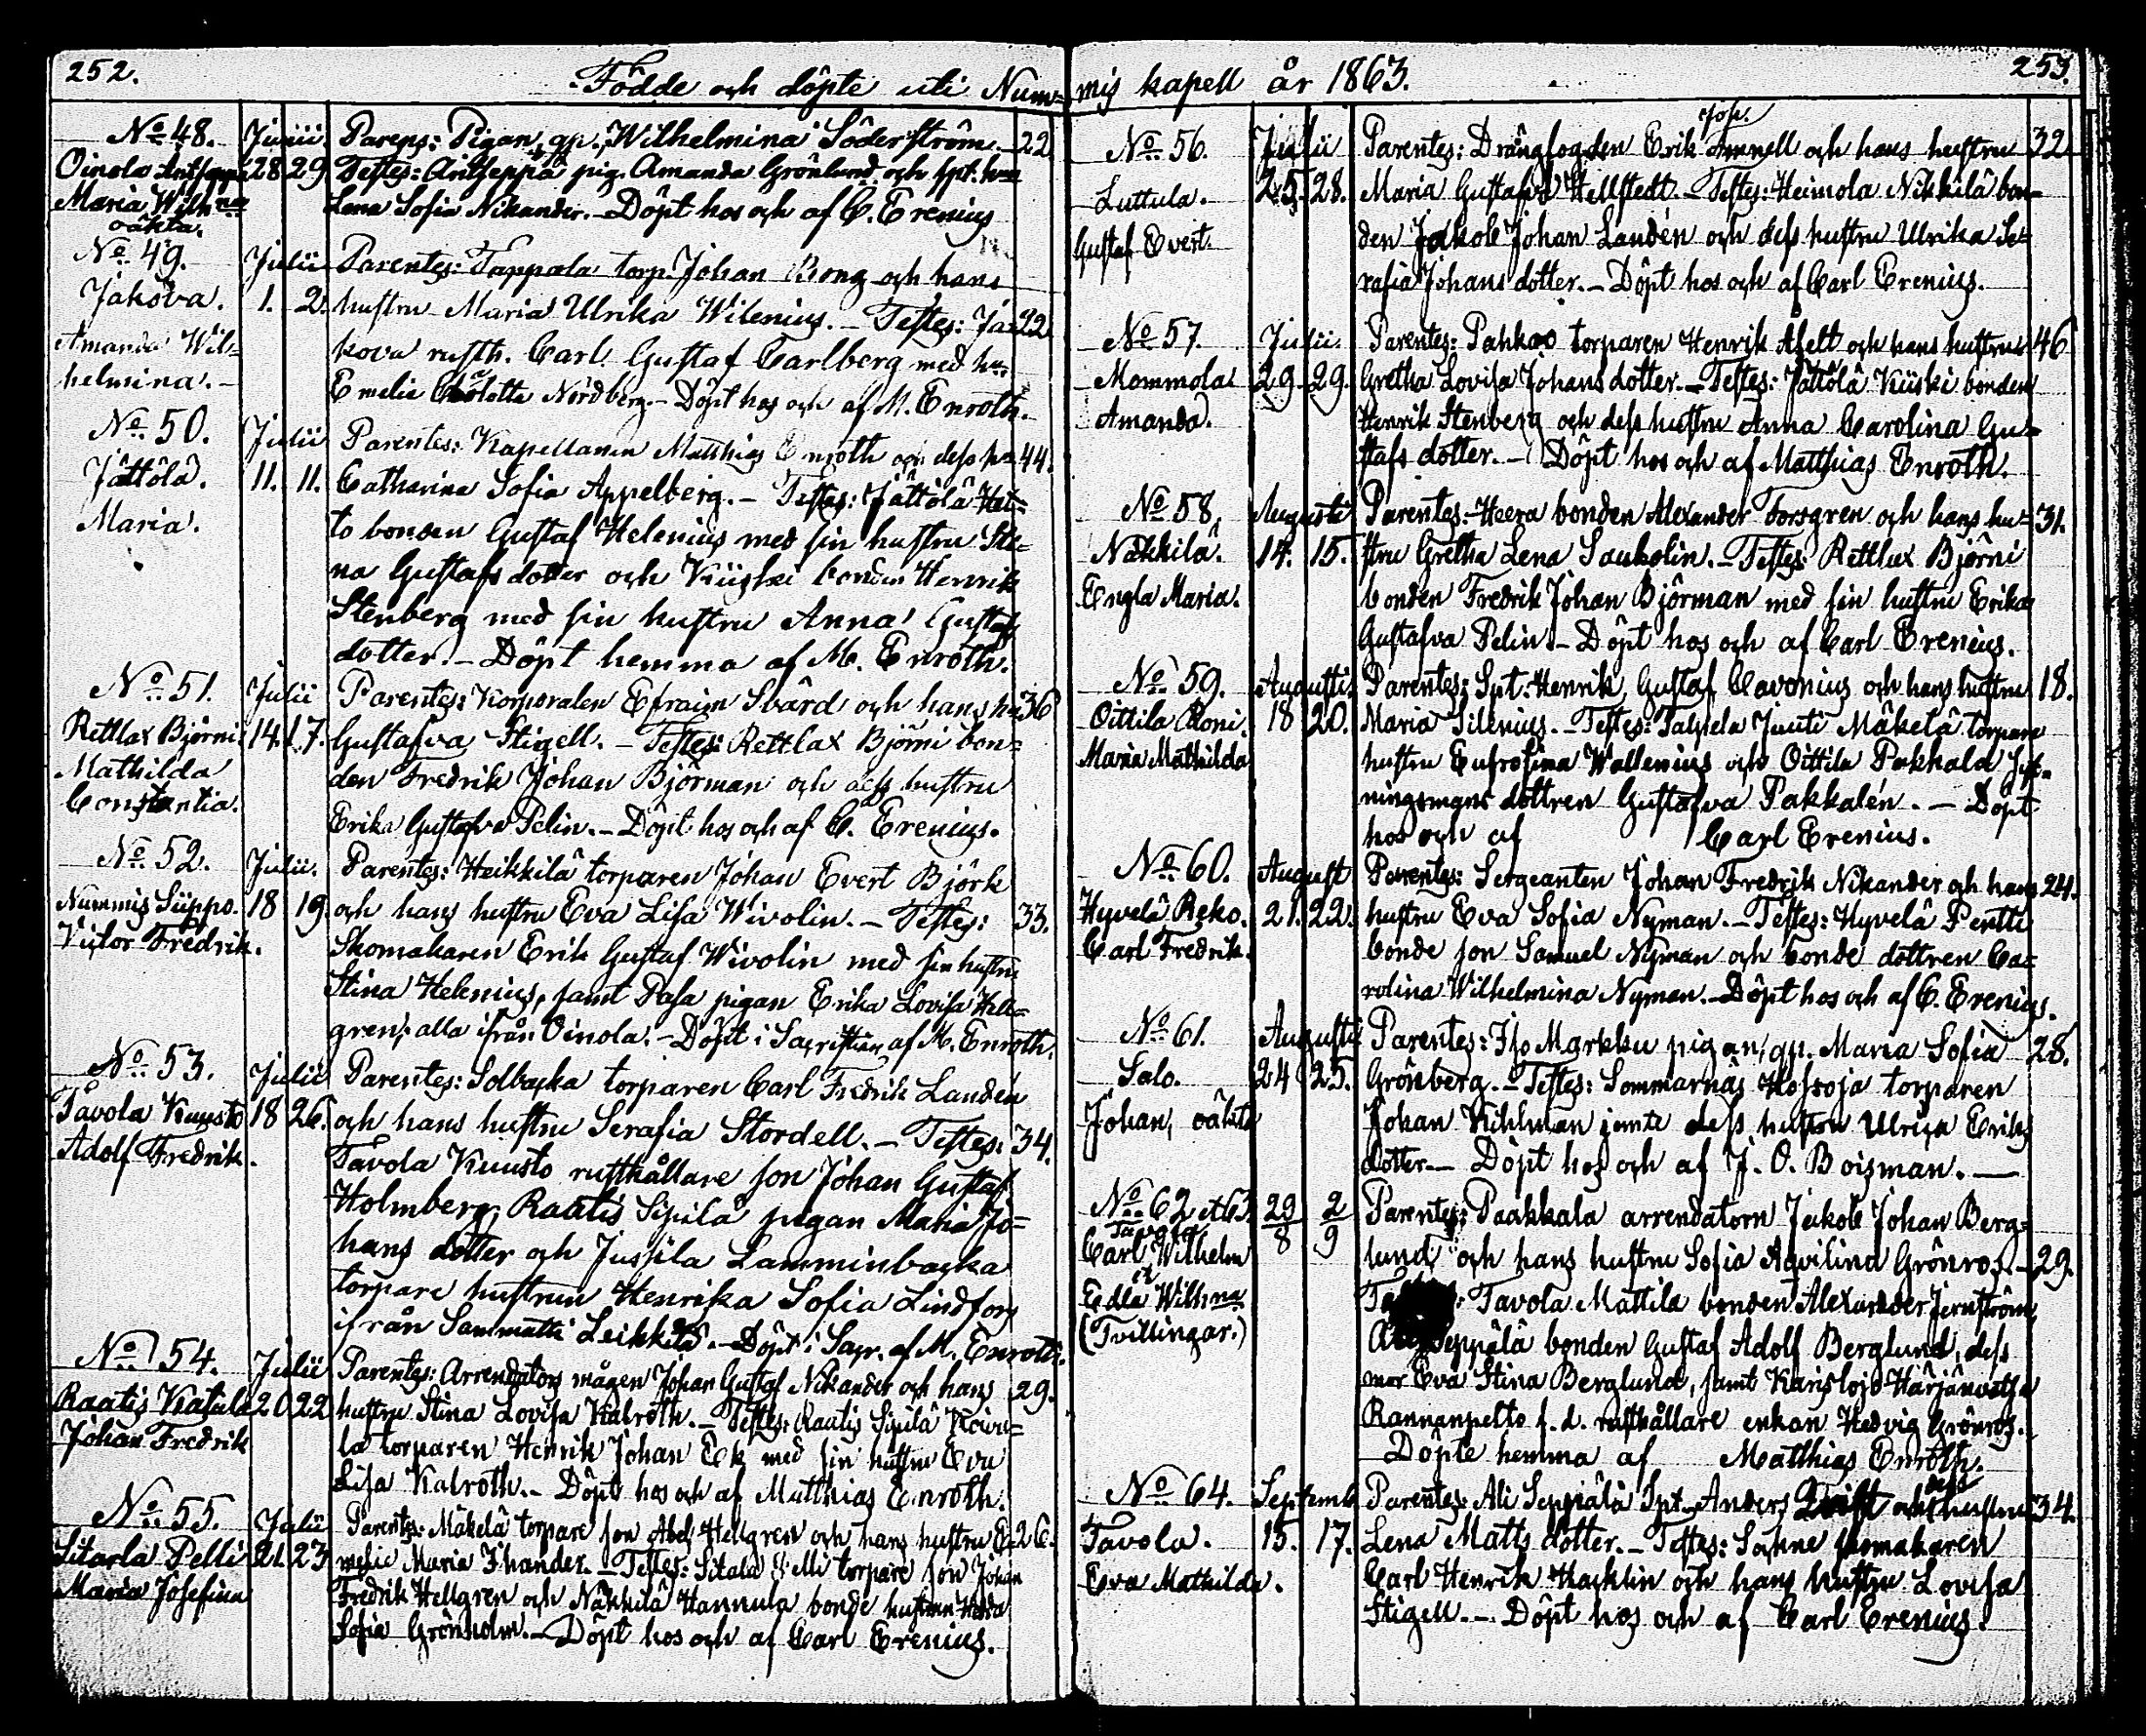 252.
Födde och döpte uti Num=
No 48. Junii. Parens: Pigan, gp., Wilhelmina Söderström. 22
Oinola Antseppä 28 29. Testes: Antseppä pig. Amanda Grönlund och spt. hu
Maria Wilhna Lena Sofia Nikander. – Döpt hos och af C. Erenius
oäkta.
No 49. Julii Parentes: Tappala torp. Johan Bong och hans
Jakova. 1. 2. hustru Maria Ulrika Wilenius. – Testes: Ja= 22
Amanda Wil= kova rusth. Carl Gustaf Carlberg med hu
helmina. – Emelie Charlotta Nordberg. – Döpt hos och af M. Enroth.
No 50. Julii Parentes: Kapellanen Matthias Enroth och dess hu 44.
Jättölä. 11. 11. Catharina Sofia Appelberg. – Testes: Jättölä Hei=
Maria. to bonden Gustaf Helenius med sin hustru Sti=
na Gustafs dotter och Kiiski bonden Henrik
Stenberg med sin hustru Anna Gustafs
dotter. – Döpt hemma af M. Enroth.
No 51. Julii Parentes: Korporalen Efraim Svärd och hans hu 36
Rettlax Björni 14. 17. Gustafva Stigell. – Testes: Rettlax Björni bon=
Mathilda den Fredrik Johan Björman och dess hustru
Constantia. Erika Gustafva Pelin. – Döpt hos och af C. Erenius.
No 52. Julii. Parentes: Heikkilä torparen Johan Evert Björk
Nummis Siippo. 18 19. och hans hustru Eva Lisa Wivolin. – Testes: 33.
Victor Fredrik. Skomakaren Erik Gustaf Wivolin med sin hustru
Stina Helenius, samt Pasa pigan Erika Lovisa Hell=
gren; alla ifrån Oinola. – Döpt i Sacristian af M. Enroth.
No 53. Julii Parentes: Solbacka torparen Carl Fredrik Landén
Tavola Kuusto 18 26. och hans hustru Serafia Stordell. – Testes: 34.
Adolf Fredrik. Tavola Kuusto rusthållare son Johan Gustaf
Holmberg, Raatis Sipilä pigan Maria Jo=
hans dotter och Jussila Lamminbacka
torpare hustrun Henrika Sofia Lindfors
ifrån Sammatti Leikkilä. – Döpt i Sacr. af M. Enroth.
No 54. Julii Parentes: Arrendators mågen Johan Gustaf Nikander och hans 29.
Raatis Katula 20 22 hustru Stina Lovisa Kalroth. – Testes: Raatis Sipilä Koivu=
Johan Fredrik la torparen Henrik Johan Ek med sin hustru Eva
Lisa Kalroth. – Döpt hos och af Matthias Enroth.
No 55. Julii Parentes: Mäkelä torpare son Abel Hellgren och hans hustru E= 26.
Sitarla Pelli 21. 23 melie Maria Ihander. – Testes: Sitala Pelli torpare son Johan
Maria Josefina Fredrik Hellgren och Näkkilä Hannula bonde hustrun Hedda
Sofia Grönholm. – Döpt hos och af Carl Erenius.
253.
mis kapell år 1863.
Joh.
No 56. Julii Parentes: Drängfogden Erik Ammell och hans hustru 32
Luttula. 25. 28. Maria Gustafva Hellstedt. – Testes: Heimola Nikkilä bon=
Gustaf Evert. den Jakob Johan Landén och dess hustru Ulrika Se=
rafia Johans dotter. – Döpt hos och af Carl Erenius.
No 57. Julii. Parentes: Pahkao torparen Henrik Afelt och hans hustru 46
Mommola 29 29. Gretha Lovisa Johans dotter. – Testes: Jättölä Kiiski bonden
Amanda. Henrik Stenberg och dess hustru Anna Carolina Gu=
stafs dotter. – Döpt hos och af Matthias Enroth.
No 58. Augusti Parentes: Heera bonden Alexander Forsgren och hans hu= 31.
Näkkilä. 14. 15. stru Gretha Lena Saukolin. – Testes: Rettlax Björni
Engla Maria. bonden Fredrik Johan Björman med sin hustru Erika
Gustafva Pelin – Döpt hos och af Carl Erenius.
No 59. Augusti Parentes: Spt. Henrik Gustaf Cavonius och hans hustru 18.
Oittila Roni. 18 20. Maria Silenius. – Testes: Talpela Juuti Mäkelä torpare
Maria Mathilda hustru Eufrosina Wallenius och Oittila Pakkala
ningsmans dottren Gustafva Pakkalén. – Döpt
hos och af Carl Erenius.
No 60. August Parentes: Sergeanten Johan Fredrik Nikander och hans 24.
Hyvelä Reko. 21. 22. hustru Eva Sofia Nyman. – Testes: Hyvelä Pentti
Carl Fredrik. bonde son Samuel Nyman och bonde dottren Ca=
rolina Wilhelmina Nyman. – Döpt hos och af C. Erenius.
No 61. Augusti Parentes: Iso Markku pigan, gp. Maria Sofia 28.
Salo. 24 25. Grönberg. – Testes: Sommarnäs Hossoja torparen
Johan, oäkta Johan Kihlman jemte dess hustru Ulrica Eriks
dotter. – Döpt hos och af J. O. Boisman. –
No 62 et 63 29/8 2/9 Parentes: Paakkala arrendatorn Jakob Johan Berg=
Tavola
Carl Wilhelm lund och hans hustru Sofia Aqvilina Grönros. – 29.
et
Edla Wilhna Tavola Mattila bonden Alexander Jernström,
(Tvillingar.) Seppälä bonden Gustaf Adolf Berglund, dess
mor Eva Stina Berglund, samt Karislojo Härjänvatsa
Rannanpelto f. d. rusthållare enkan Hedvig Grönros.
Döpte hemma af Matthias Enroth.
dess
No 64. Septemb. Parentes: Ali Seppälä Spt. Anders Qvist och hustru 34.
Tavola. 15. 17. Lena Matts dotter. – Testes: Sockne skomakaren
Eva Mathilda. Carl Henrik Hacklin och hans hustru Lovisa
Stigell. – Döpt hos och af Carl Erenius.